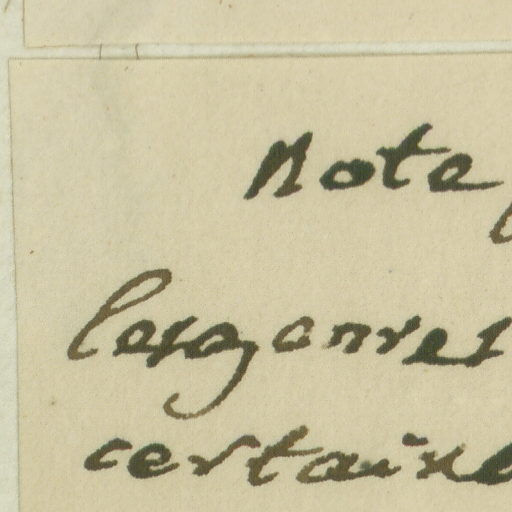 Note
les genres
certaine